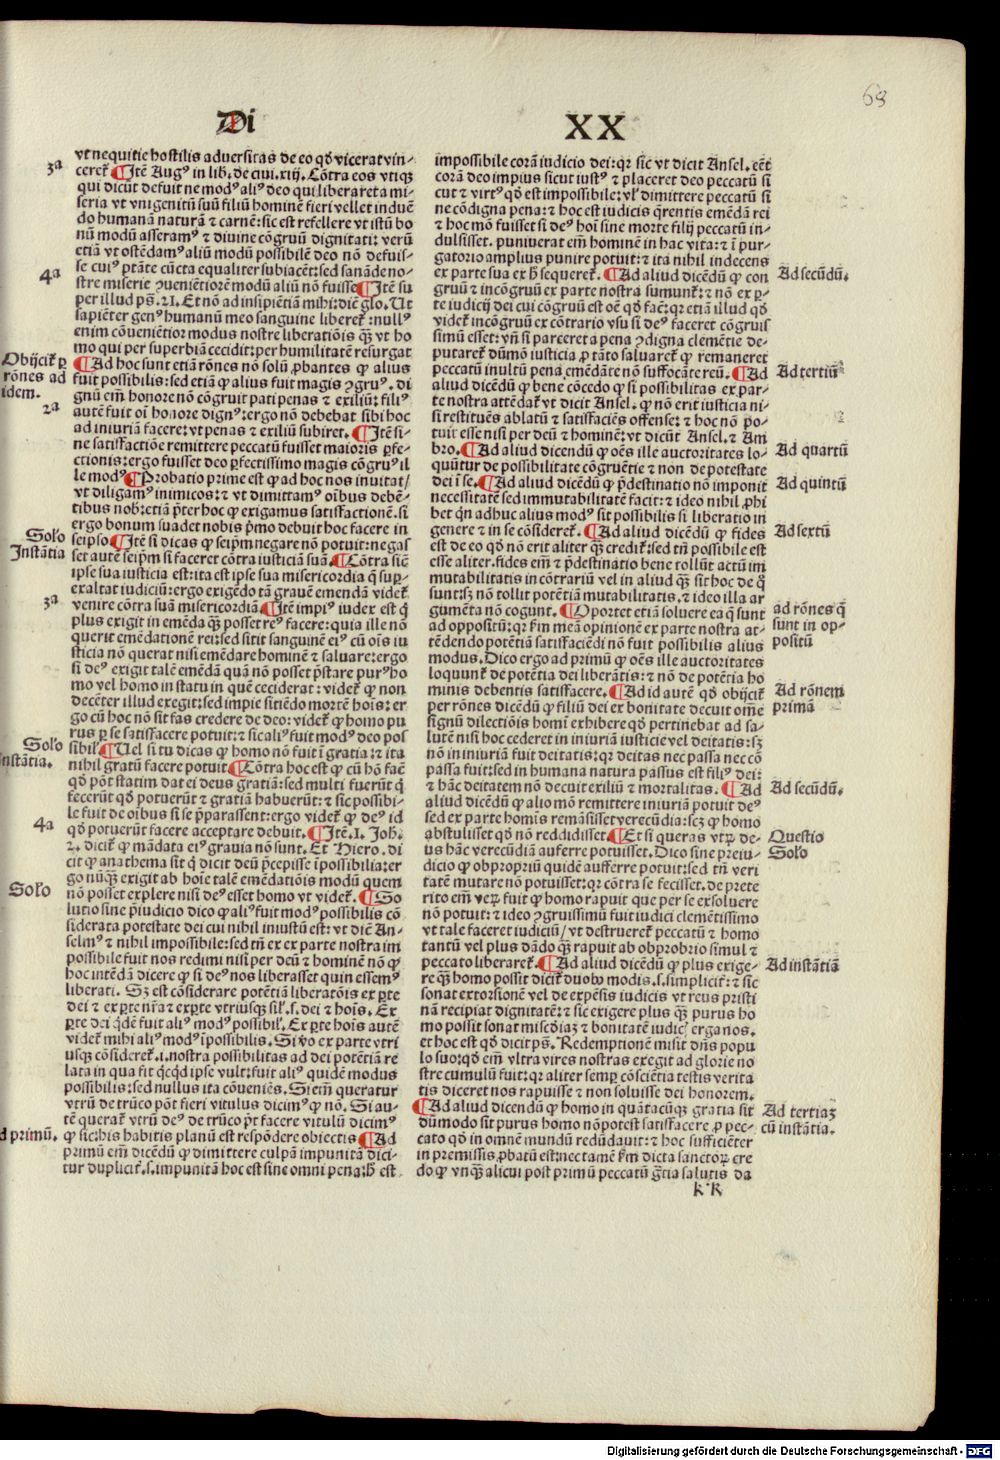 68
Di
XX
vt nequitie hostilis aduersitas de eo qđ vicerat vin-
3ª
ceret̃ ¶ Itẽ Augꝰ in lib. de ciui. xiij. Cõtra eos vtiqꝫ
qui dicũt defuit ne modꝰ aliꝰ deo qui liberaret a mi-
seria vt vnigenitũ suũ filiũ hominẽ fieri vellet induẽ
do humanã naturã ⁊ carnẽ: sic est refellere vt istũ bo
nũ modũ asseramꝰ ⁊ diuine cõgruũ dignitati: verũ
etiã vt ostẽdamꝰ aliũ modũ possibilẽ deo nõ defuis-
4ª
se cuiꝰ ptãte cũcta equaliter subiacẽt: sed sanãde no-
stre miserie ꝯueniẽtiorẽ modũ aliũ nõ fuisse ¶ Itẽ su
per illud pš. 21. Et nõ ad insipiẽtiã mihi: diẽ glo. Ut
sapiẽter genꝰ humanũ meo sanguine liberet̃: nullꝰ
enim cõueniẽtior modus nostre liberatiõis qꝫ vt ho
mo qui per superbiã cecidit: per humilitatẽ resurgat
Obijcit̃ ꝑ
rõnes ad
idem.
¶ Ad hoc sunt etiã rõnes nõ solũ ꝓbantes ꝙ alius
fuit possibilis: sed etiã ꝙ alius fuit magis ꝯgruꝰ. di
gnũ em̃ honore nõ cõgruit pati penas ⁊ exiliũ: filiꝰ
2ª
autẽ fuit oi honore dignꝰ: ergo nõ debebat sibi hoc
ad iniuriã facere: vt penas ⁊ exiliũ subiret. ¶ Itẽ si-
ne satisfactiõe remittere peccatũ fuisset maioris ꝑfe-
ctionis: ergo fuisset deo ꝑfectissimo magis cõgruꝰ il
le modꝰ ¶ Probatio prime est ꝙ ad hoc nos inuitat/
vt diligamꝰ inimicos: ⁊ vt dimittamꝰ oĩbus debẽ-
tibus nob: etiã p̃ter hoc ꝙ exigamus satisfactionẽ. si
Solo
ergo bonum suadet nobis p̃mo debuit hoc facere in
Instãtia
seipso ¶ Itẽ si dicas ꝙ seip̃m negare nõ potuit: negas
set autẽ seip̃m si faceret cõtra iusticiã suã ¶ Cõtra sic
ipse sua iusticia est: ita est ipse sua misericordia q̃ suꝑ-
exaltat iudiciũ: ergo exigẽdo tã grauẽ emendã videt̃
3ª
venire cõtra suã misericordiã ¶ Itẽ impiꝰ iudex est q̃
plus exigit in emẽda qꝫ posset reꝰ facere: quia ille nõ
querit emẽdationẽ rei: sed sitit sanguinẽ eiꝰ cũ oĩs iu
sticia nõ querat nisi emẽdare hominẽ ⁊ saluare: ergo
si deꝰ exigit talẽ emẽdã quã nõ posset p̃stare purꝰ ho
mo vel homo in statu in quẽ ceciderat: videt̃ ꝙ non
decẽter illud exegit: sed impie sitiẽdo mortẽ hoĩs: er
go cũ hoc nõ sit fas credere de deo: videt̃ ꝙ homo pu
rus ꝑ se satisfacere potuit: ⁊ sic aliꝰ fuit modꝰ deo pos
Solo
sibil ¶ Uel si tu dicas ꝙ homo nõ fuit ĩ gratia: ⁊ ita
nstãtia.
nihil gratũ facere potuit ¶ Cõtra hoc est ꝙ cũ hõ faẽ
qđ põt statim dat ei deus gratiã: sed multi fuerũt q̃
fecerũt qđ potuerũt ⁊ gratiã habuerũt: ⁊ sic possibi-
le fuit de oĩbus si se p̃parassent: ergo videt̃ ꝙ deꝰ id
4ª
qđ potuerũt facere acceptare debuit. ¶ Itẽ. 1. Joh.
2. dicit̃ ꝙ mãdata eiꝰ grauia nõ sunt. Et Hiero. di
cit ꝙ anathema sit q̃ dicit deũ p̃cepisse ĩpossibilia: er
go nũqꝫ exigit ab hoĩe talẽ emẽdatiõis modũ quem
Solo
nõ posset explere nisi deꝰ esset homo vt videt̃. ¶ So
lutio sine p̃iudicio dico ꝙ aliꝰ fuit modꝰ possibilis cõ
siderata potestate dei cui nihil iniustũ est: vt diẽ An-
selmꝰ ⁊ nihil impossibile: sed tñ ex ex parte nostra im
possibile fuit nos redimi nisi per deũ ⁊ hominẽ nõ ꝙ
hoc intẽdã dicere ꝙ si deꝰ nos liberasset quin essemꝰ
liberati. Sꝫ est cõsiderare potẽtiã liberatõis ex ꝑte
dei ⁊ ex ꝑte nr̃a ⁊ ex ꝑte vtriusqꝫ sil. s. dei ⁊ hoĩs. Ex
ꝑte dei q̃dẽ fuit aliꝰ modꝰ possibil. Ex ꝑte hoĩs autẽ
videt̃ mihi aliꝰ modꝰ ĩpossibilis. Si ṽo ex parte vtri
usqꝫ cõsideret̃. i. nostra possibilitas ad dei potẽtiã re
lata in qua fit q̃cq̃d ipse vult: fuit aliꝰ quidẽ modus
possibilis: sed nullus ita cõueniẽs. Si em̃ queratur
vtrũ de trũco põt fieri vitulus dicimꝰ ꝙ nõ. Si au-
tẽ querat̃ vtrũ deꝰ de trũco p̃t facere vitulũ dicimꝰ
d primũ.
ꝙ sic: his habitis planũ est respõdere obiectis ¶ Ad
primũ em̃ dicẽdũ ꝙ dimittere culpã impunitã dici-
tur duplicit̃. s. impunitã hoc est sine omni pena: ⁊ h̃ est
impossibile corã iudicio dei: qꝛ sic vt dicit Ansel. eẽt
corã deo impius sicut iustꝰ ⁊ placeret deo peccatũ si
cut ⁊ virtꝰ qđ est impossibile: vl' dimittere peccatũ si
ne cõdigna pena: ⁊ hoc est iudicis q̃rentis emẽdã rei
⁊ hoc mõ fuisset si deꝰ hoĩ sine morte filij peccatũ in-
dulsisset. puniuerat em̃ hominẽ in hac vita: ⁊ ĩ pur-
gatorio amplius punire potuit: ⁊ ita nihil indecens
Ad secũdũ.
ex parte sua ex h̃ sequeret̃. ¶ Ad aliud dicẽdũ ꝙ con
gruũ ⁊ incõgruũ ex parte nostra sumunt̃: ⁊ nõ ex ꝑ-
te iudicij dei cui cõgruũ est oẽ qđ faẽ: qꝛ etiã illud qđ
videt̃ incõgruũ ex cõtrario vsu si deꝰ faceret cõgruis
simũ esset: vñ si parceret a pena ꝯdigna clemẽtie de-
putaret̃ dũmõ iusticia ꝓ tãto saluaret̃ ꝙ remaneret
Ad tertiũ
peccatũ inultũ pena emẽdãte nõ suffocãte reũ. ¶ Ad
aliud dicẽdũ ꝙ bene cõcedo ꝙ si possibilitas ex par-
te nostra attẽdat̃ vt dicit Ansel. ꝙ nõ erit iusticia ni-
si restituẽs ablatũ ⁊ satisfaciẽs offense: ⁊ hoc nõ po-
tuit esse nisi per deũ ⁊ hominẽ: vt dicũt Ansel. ⁊ Am
Ad quartũ
bro. ¶ Ad aliud dicendũ ꝙ oẽs ille auctoritates lo-
quũtur de possibilitate cõgruẽtie ⁊ non de potestate
Ad quintũ
dei ĩ se. ¶ Ad aliud dicẽdũ ꝙ p̃destinatio nõ imponit
necessitatẽ sed immutabilitatẽ facit: ⁊ ideo nihil ꝓhi
bet q̃n adhuc alius modꝰ sit possibilis si liberatio in
Ad sextũ
genere ⁊ in se cõsideret̃. ¶ Ad aliud dicẽdũ ꝙ fides
est de eo qđ nõ erit aliter qꝫ credit̃: sed tñ possibile est
esse aliter. fides em̃ ⁊ p̃destinatio bene tollũt actũ im
mutabilitatis in cõtrariũ vel in aliud qꝫ sit hoc de q̃
sunt: sꝫ nõ tollit potẽtiã mutabilitatis. ⁊ ideo illa ar
ad rõnes q̃
sunt in op-
positũ
gumẽta nõ cogunt. ¶ Oportet etiã soluere ea q̃ sunt
ad oppositũ: qꝛ fm meã opinionẽ ex parte nostra at-
tẽdendo potẽtiã satisfaciẽdi nõ fuit possibilis alius
modus. Dico ergo ad primũ ꝙ oẽs ille auctoritates
loquunt̃ de potẽtia dei liberãtis: ⁊ nõ de potẽtia ho
Ad rõnem
primã
minis debentis satisfacere. ¶ Ad id autẽ qđ obijcit̃
per rõnes dicẽdũ ꝙ filiũ dei ex bonitate decuit om̃e
signũ dilectiõis homĩ exhibere qđ pertinebat ad sa-
lutẽ nisi hoc cederet in iniuriã iusticie vel deitatis: sꝫ
nõ in iniuriã fuit deitatis: qꝛ deitas nec passa nec cõ
passa fuit: sed in humana natura passus est filiꝰ dei:
Ad secũdũ.
⁊ hãc deitatem nõ decuit exiliũ ⁊ mortalitas. ¶ Ad
aliud dicẽdũ ꝙ alio mõ remittere iniuriã potuit deꝰ
sed ex parte homis remãsisset verecũdia: scꝫ ꝙ homo
Questio
Solo
abstulisset qđ nõ reddidisset. ¶ Et si queras vtꝝ de-
us hãc verecũdiã auferre potuisset. Dico sine preiu-
dicio ꝙ obpropriũ quidẽ aufferre potuit: sed tñ veri
tatẽ mutare nõ potuisset: qꝛ cõtra se fecisset. de prete
rito em̃ verũ fuit ꝙ homo rapuit que per se exsoluere
nõ potuit: ⁊ ideo ꝯgruissimũ fuit iudici clemẽtissimo
vt tale faceret iudiciũ/ vt destrueret̃ peccatũ ⁊ homo
tantũ vel plus dãdo qꝫ rapuit ab obprobrio simul ⁊
Ad instãtiã
peccato liberaret̃. ¶ Ad aliud dicẽdũ ꝙ plus exige-
re qꝫ homo possit dicit̃ duoꝰ modis. s. simplicit̃: ⁊ sic
sonat extorsionẽ vel de expẽsis iudicis vt reus pristi
nã recipiat dignitatẽ: ⁊ sic exigere plus qꝫ purus ho
mo possit sonat misc̃diaꝫ ⁊ bonitatẽ iudic̃ erga nos.
et hoc est qđ dicit pš. Redemptionem misit dñs popu
lo suo: qđ em̃ vltra vires nostras exegit ad glorie no
stre cumulũ fuit: qꝛ aliter semꝑ cõsciẽtia testis verita
tis diceret nos rapuisse ⁊ non soluisse dei honorem.
Ad tertiaꝫ
cũ instãtia.
¶ Ad aliud dicendũ ꝙ homo in quãtacũqꝫ gratia sit
dũmodo sit purus homo nõ potest satisfacere ꝓ pec-
cato qđ in omnẽ mundũ redũdauit: ⁊ hoc sufficiẽter
in premissis ꝓbatũ est: nec tamẽ fm dicta sanctoꝝ cre
do ꝙ vnqꝫ alicui post primũ peccatũ gr̃tia salutis da
k k
Digitalisierung gefördert durch die Deutsche Forschungsgemeinschaft - DFG